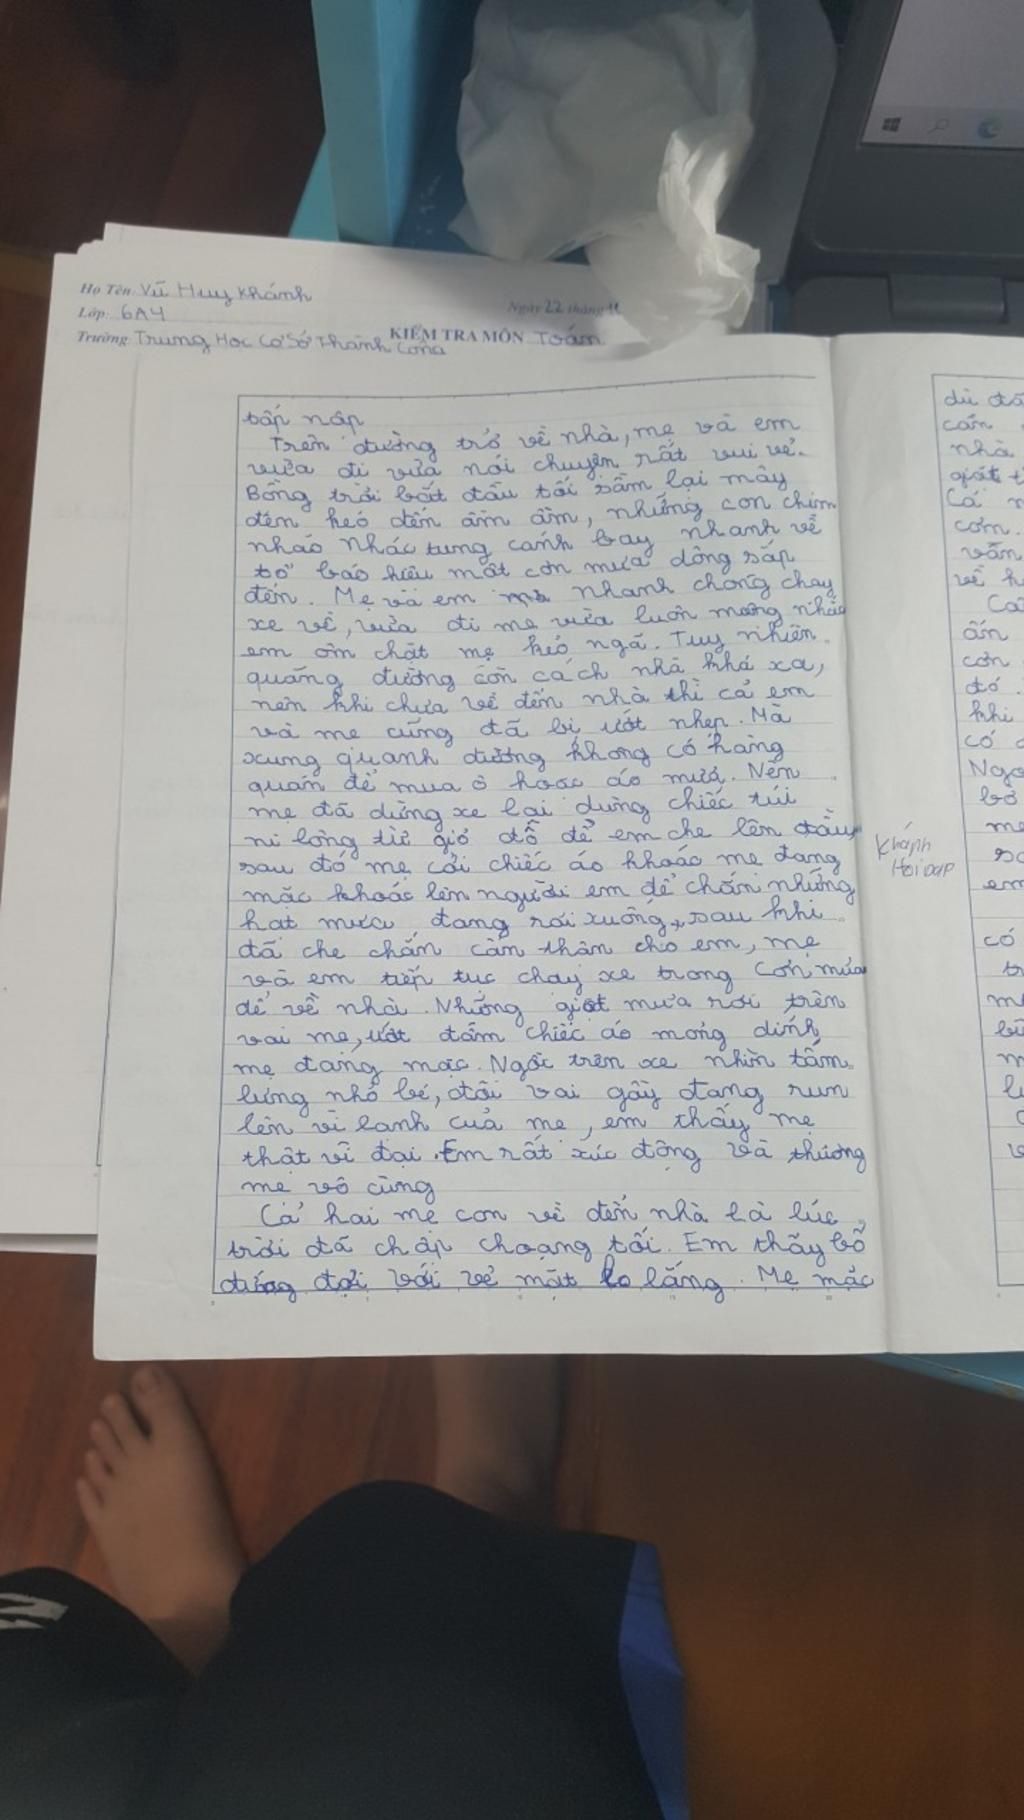 Họ Tên: Vũ Huy Khánh
Ngày 22 tháng 11
Lớp: 6A4
KIỂM TRA MÔN Toán
Trường: Trung Học Cơ Sở Thành Công
tấp nập
Trên đường trở về nhà, mẹ và em
vừa đi vừa nói chuyện rất vui vẻ.
Bỗng trời bắt đầu tối sầm lại mây
đen kéo đến ầm ầm, những con chim
nháo nhác tung cánh bay nhanh về
tổ báo hiệu một cơn mưa dông sắp
đến. Mẹ và em nhanh chóng chạy
xe về, vừa đi mẹ vừa luôn mồng nhắc
em ôm chặt mẹ kẻo ngã. Tuy nhiên
quãng đường còn cách nhà khá xa,
nên khi chưa về đến nhà thì cả em
và mẹ cũng đã bị ướt nhẹp. Mà
xung quanh đường không có hàng
quán để mua ô hoặc áo mưa. Nên
mẹ đã dừng xe lại dùng chiếc túi
ni lông từ giỏ đồ để em che lên đầu,
sau đó mẹ cởi chiếc áo khoác mẹ đang
mặc khoác lên người em để chắn những
hạt mưa đang rơi xuống, sau khi
đã che chắn cẩn thận cho em, mẹ
và em tiếp tục chạy xe trong cơn mưa
để về nhà. Những giọt mưa rơi trên
vai mẹ, ướt đẫm chiếc áo mỏng dính
mẹ đang mặc. Ngồi trên xe nhìn tấm
lưng nhỏ bé, đôi vai gầy đang run
lên vì lạnh của mẹ, em thấy mẹ
thật vĩ đại. Em rất xúc động và thương
mẹ vô cùng
Cả hai mẹ con về đến nhà là lúc
trời đã chập choạng tối. Em thấy bố
đứng đợi với vẻ mặt lo lắng. Mẹ mặc
Khánh
dù đã
nhà
cơm.
về
ấn
cơn
đó.
khi
có
em
có